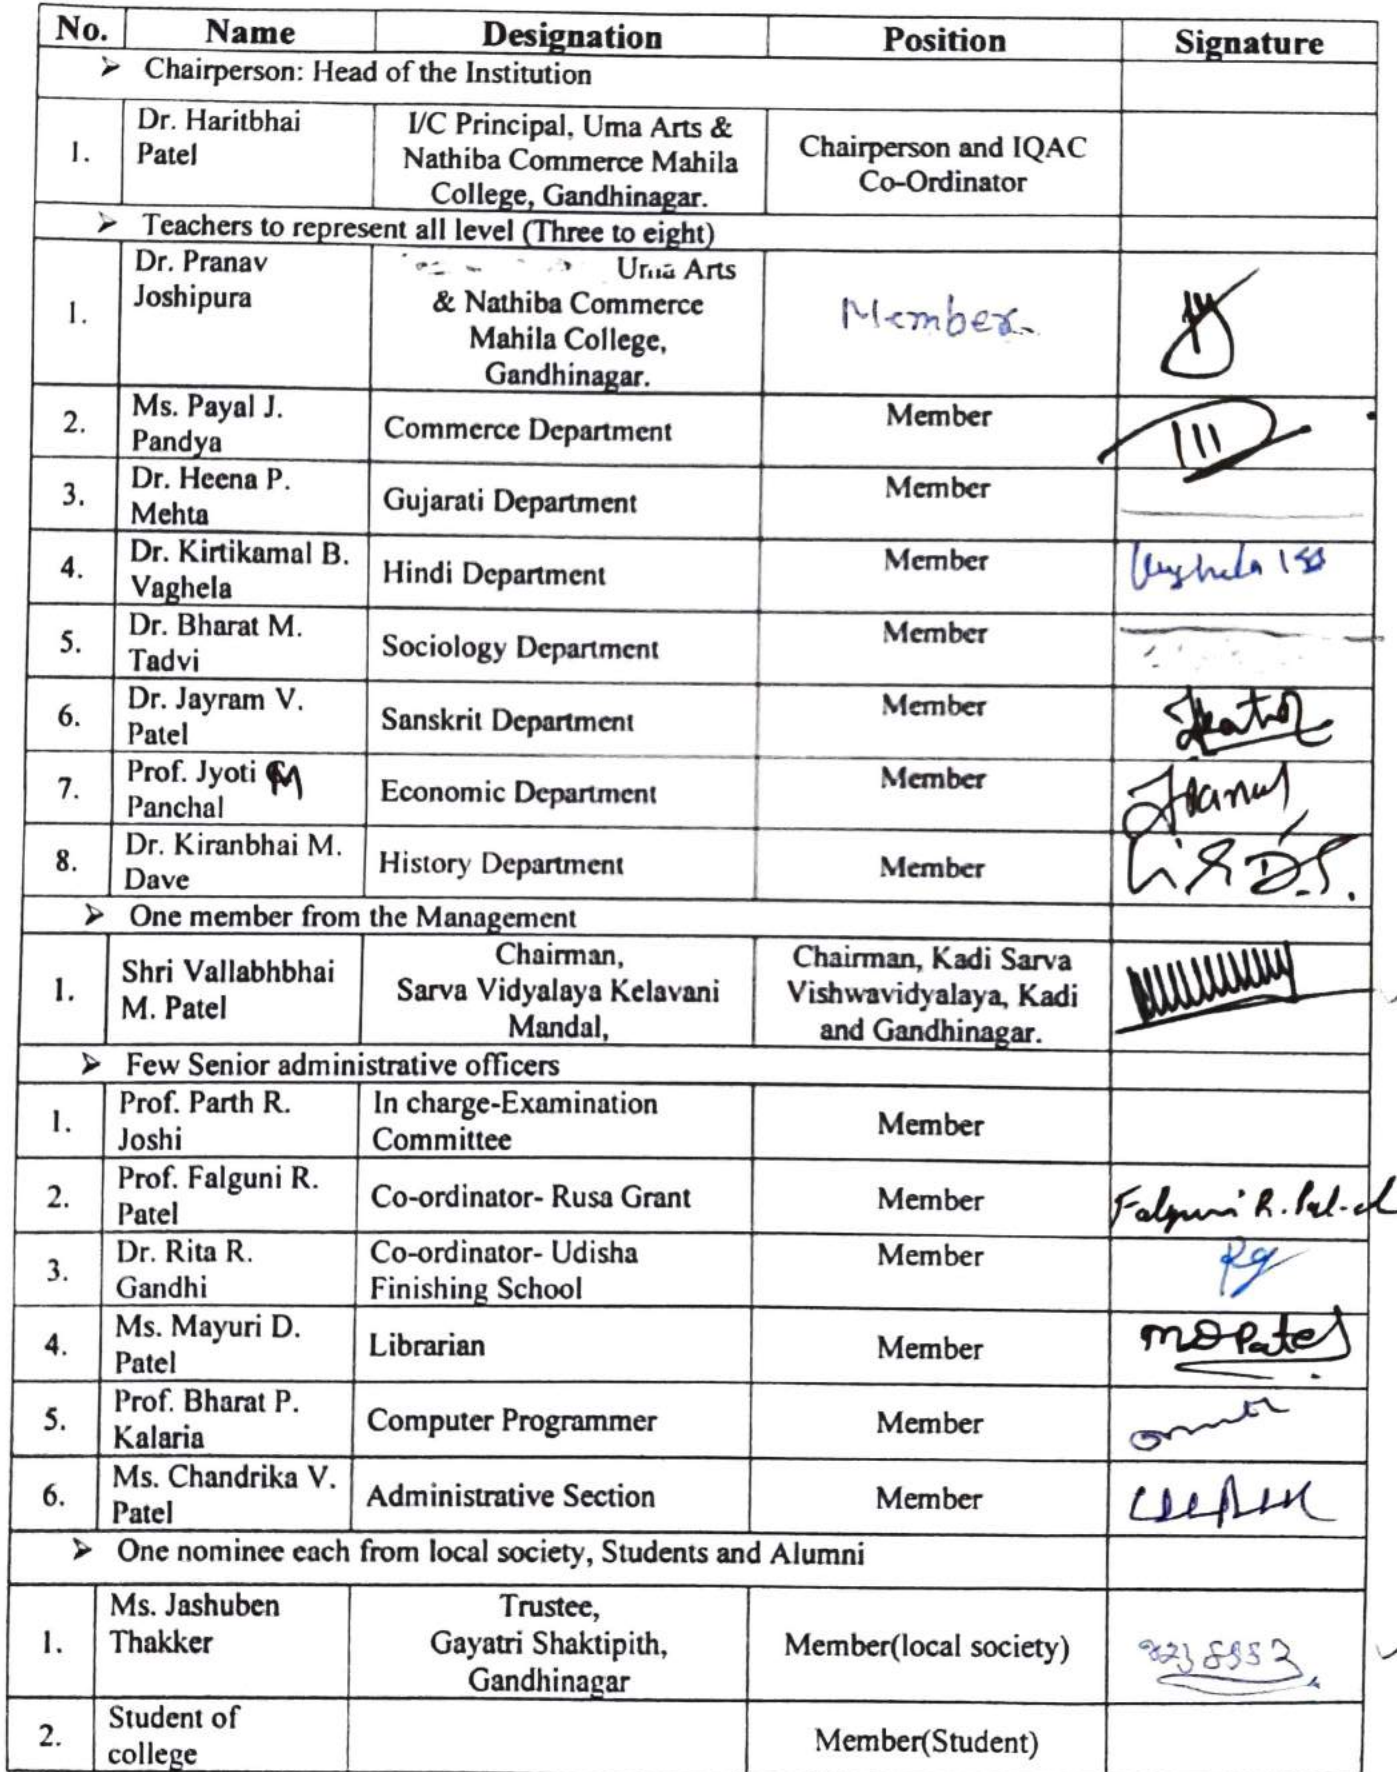 No. Name Designation Position Signature
➢ Chairperson: Head of the Institution
1. Dr. Haritbhai Patel
I/C Principal, Uma Arts &
Nathiba Commerce Mahila
College, Gandhinagar.
Chairperson and IQAC
Co-Ordinator
➢ Teachers to represent all level (Three to eight)
1. Dr. Pranav
Joshipura
Uma Arts
& Nathiba Commerce
Mahila College,
Gandhinagar.
Member
2. Ms. Payal J.
Pandya
Commerce Department
Member
3. Dr. Heena P.
Mehta
Gujarati Department
Member
4. Dr. Kirtikamal B.
Vaghela
Hindi Department
Member
5. Dr. Bharat M.
Tadvi
Sociology Department
Member
6. Dr. Jayram V.
Patel
Sanskrit Department
Member
7. Prof. Jyoti M
Panchal
Economic Department
Member
8. Dr. Kiranbhai M.
Dave
History Department
Member
➢ One member from the Management
1. Shri Vallabhbhai
M. Patel
Chairman,
Sarva Vidyalaya Kelavani
Mandal,
Chairman, Kadi Sarva
Vishwavidyalaya, Kadi
and Gandhinagar.
➢ Few Senior administrative officers
1. Prof. Parth R.
Joshi
In charge-Examination
Committee
Member
2. Prof. Falguni R.
Patel
Co-ordinator- Rusa Grant
Member
Falguni R. Patel
3. Dr. Rita R.
Gandhi
Co-ordinator- Udisha
Finishing School
Member
Rg
4. Ms. Mayuri D.
Patel
Librarian
Member
MDPatel
5. Prof. Bharat P.
Kalaria
Computer Programmer
Member
6. Ms. Chandrika V.
Patel
Administrative Section
Member
➢ One nominee each from local society, Students and Alumni
1. Ms. Jashuben
Thakker
Trustee,
Gayatri Shaktipith,
Gandhinagar
Member(local society)
2. Student of
college
Member(Student)